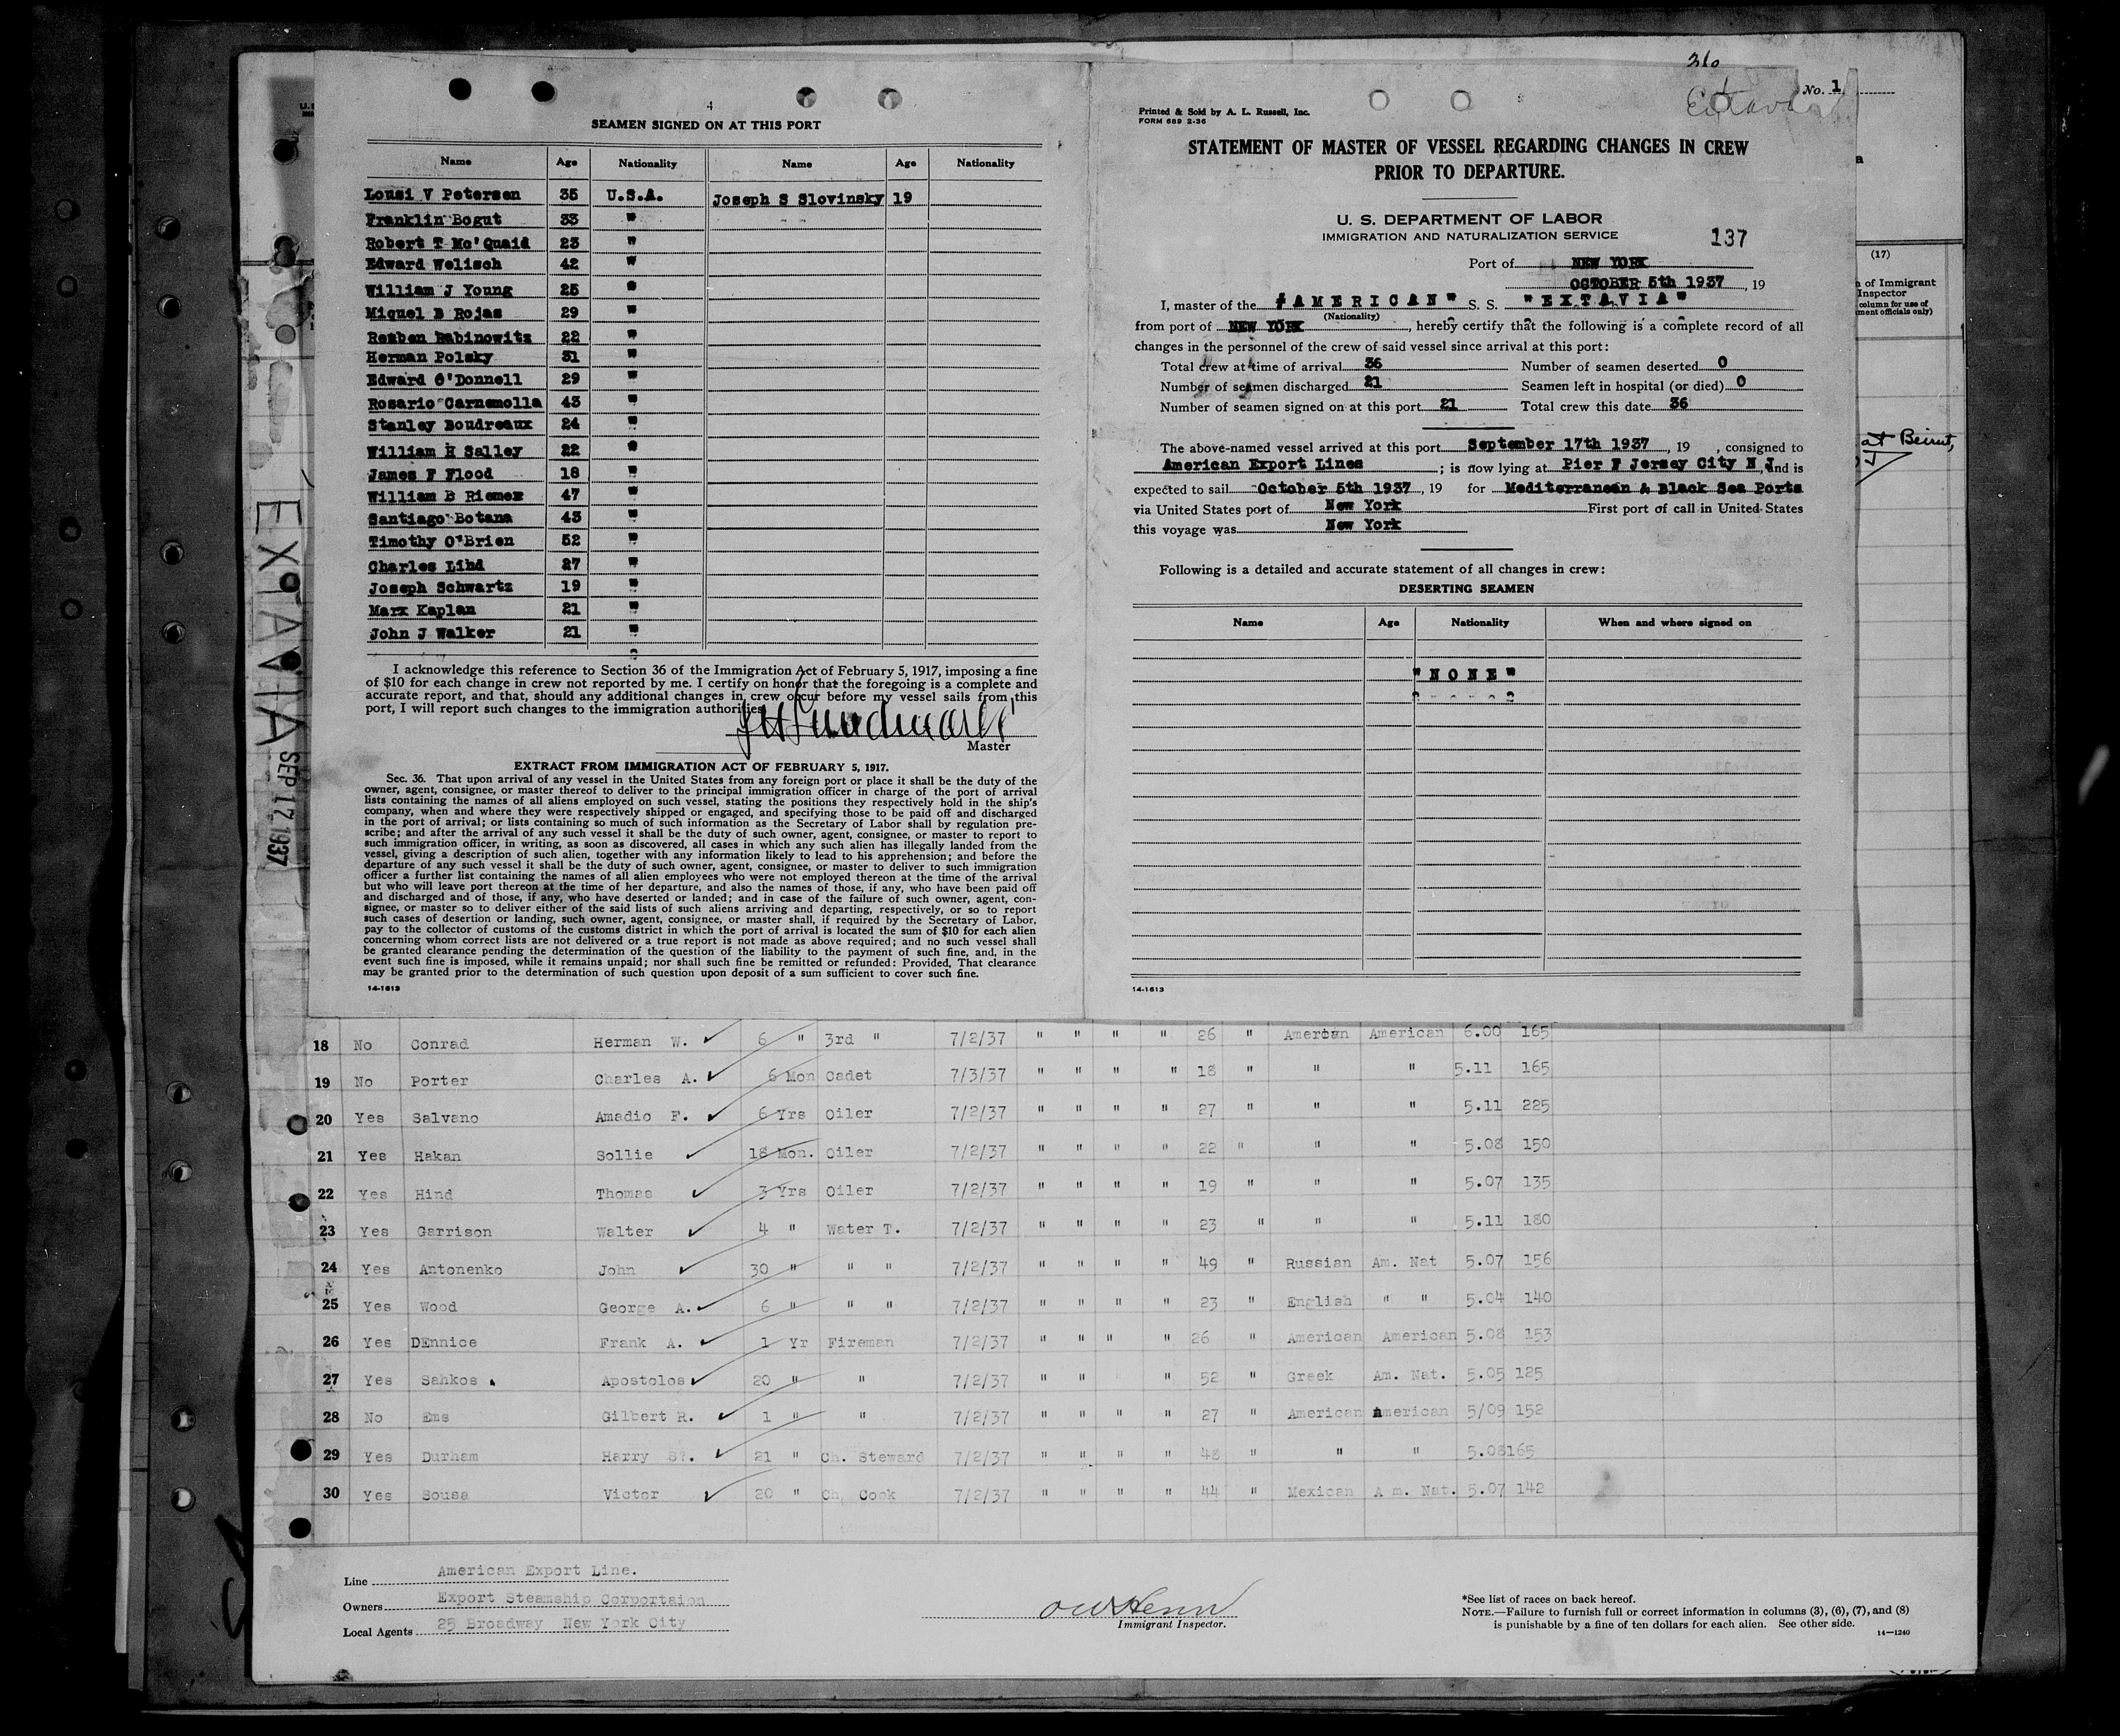 4
SEAMEN SIGNED ON AT THIS PORT
Name Age Nationality Name Age Nationality
Lousi V Petersen 35 U.S.A. Joseph S Slovinsky 19
Franklin Bogut 33 "
Robert T Mc'Quaid 23 "
Edward Welisch 42 "
William J Young 25 "
Miquel B Rojas 29 "
Reuben Rabinowitz 22 "
Herman Polsky 31 "
Edward O'Donnell 29 "
Rosario Carnemolla 43 "
Stanley Boudreaux 24 "
William H Salley 22 "
James F Flood 18 "
William B Riemer 47 "
Santiago Botana 43 "
Timothy O'Brien 52 "
Charles Lind 27 "
Joseph Schwartz 19 "
Marx Kaplan 21 "
John J Walker 21 "
I acknowledge this reference to Section 36 of the Immigration Act of February 5, 1917, imposing a fine
of $10 for each change in crew not reported by me. I certify on honor that the foregoing is a complete and
accurate report, and that, should any additional changes in crew occur before my vessel sails from this
port, I will report such changes to the immigration authorities.
Master
EXTRACT FROM IMMIGRATION ACT OF FEBRUARY 5, 1917.
Sec. 36. That upon arrival of any vessel in the United States from any foreign port or place it shall be the duty of the
owner, agent, consignee, or master thereof to deliver to the principal immigration officer in charge of the port of arrival
lists containing the names of all aliens employed on such vessel, stating the positions they respectively hold in the ship's
company, when and where they were respectively shipped or engaged, and specifying those to be paid off and discharged
in the port of arrival; or lists containing so much of such information as the Secretary of Labor shall by regulation pre-
scribe; and after the arrival of any such vessel it shall be the duty of such owner, agent, consignee, or master to report to
such immigration officer, in writing, as soon as discovered, all cases in which any such alien has illegally landed from the
vessel, giving a description of such alien, together with any information likely to lead to his apprehension; and before the
departure of any such vessel it shall be the duty of such owner, agent, consignee, or master to deliver to such immigration
officer a further list containing the names of all alien employees who were not employed thereon at the time of the arrival
but who will leave port thereon at the time of her departure, and also the names of those, if any, who have been paid off
and discharged and of those, if any, who have deserted or landed; and in case of the failure of such owner, agent, con-
signee, or master so to deliver either of the said lists of such aliens arriving and departing, respectively, or so to report
such cases of desertion or landing, such owner, agent, consignee, or master shall, if required by the Secretary of Labor,
pay to the collector of customs of the customs district in which the port of arrival is located the sum of $10 for each alien
concerning whom correct lists are not delivered or a true report is not made as above required; and no such vessel shall
be granted clearance pending the determination of the question of the liability to the payment of such fine, and, in the
event such fine is imposed, while it remains unpaid; nor shall such fine be remitted or refunded: Provided, That clearance
may be granted prior to the determination of such question upon deposit of a sum sufficient to cover such fine.
14-1613
EXTAVIA SEP 17 1937
No. 1
Printed & Sold by A. L. Russell, Inc.
FORM 689 2-36
STATEMENT OF MASTER OF VESSEL REGARDING CHANGES IN CREW
PRIOR TO DEPARTURE.
U. S. DEPARTMENT OF LABOR
IMMIGRATION AND NATURALIZATION SERVICE
137
Port of NEW YORK
OCTOBER 5th 1937, 19
I, master of the "AMERICAN" S. S. "EXTAVIA"
(Nationality)
from port of NEW YORK, hereby certify that the following is a complete record of all
changes in the personnel of the crew of said vessel since arrival at this port:
Total crew at time of arrival 36 Number of seamen deserted 0
Number of seamen discharged 21 Seamen left in hospital (or died) 0
Number of seamen signed on at this port 21 Total crew this date 36
The above-named vessel arrived at this port September 17th 1937, 19 , consigned to
American Export Lines; is now lying at Pier F Jersey City N J, and is
expected to sail October 5th 1937, 19 for Mediterranean & Black Sea Ports
via United States port of New York First port of call in United States
this voyage was New York
Following is a detailed and accurate statement of all changes in crew:
DESERTING SEAMEN
Name Age Nationality When and where signed on
"NONE"
14-1613
(17)
of Immigrant
Inspector
column for use of
ment officials only)
at Beirut,
18 No Conrad Herman W. 6 " 3rd " 7/2/37 " " " " 26 " American American 6.00 165
19 No Porter Charles A. 6 Mon Cadet 7/3/37 " " " " 18 " " " 5.11 165
20 Yes Salvano Amadio F. 6 Yrs Oiler 7/2/37 " " " " 27 " " " 5.11 225
21 Yes Hakan Sollie 18 Mon. Oiler 7/2/37 " " " " 22 " " " 5.08 150
22 Yes Hind Thomas 3 Yrs Oiler 7/2/37 " " " " 19 " " " 5.07 135
23 Yes Garrison Walter 4 " Water T. 7/2/37 " " " " 23 " " " 5.11 180
24 Yes Antonenko John 30 " " " 7/2/37 " " " " 49 " Russian Am. Nat 5.07 156
25 Yes Wood George A. 6 " " " 7/2/37 " " " " 23 " English " " 5.04 140
26 Yes DEnnice Frank A. 1 Yr Fireman 7/2/37 " " " " 26 " American American 5.08 153
27 Yes Sahkos Apostolos 20 " " 7/2/37 " " " 52 " Greek Am. Nat. 5.05 125
28 No Ems Gilbert R. 1 " " 7/2/37 " " " " 27 " American American 5/09 152
29 Yes Durham Harry S?. 21 " Ch. Steward 7/2/37 " " " " 48 " " " 5.08 165
30 Yes Sousa Victor 20 " Ch, Cook 7/2/37 " " " " 44 " Mexican A m. Nat. 5.07 142
Line American Export Line.
Owners Export Steamship Corportaion
Local Agents 25 Broadway New York City
Immigrant Inspector.
*See list of races on back hereof.
NOTE.—Failure to furnish full or correct information in columns (3), (6), (7), and (8)
is punishable by a fine of ten dollars for each alien. See other side.
14-1240